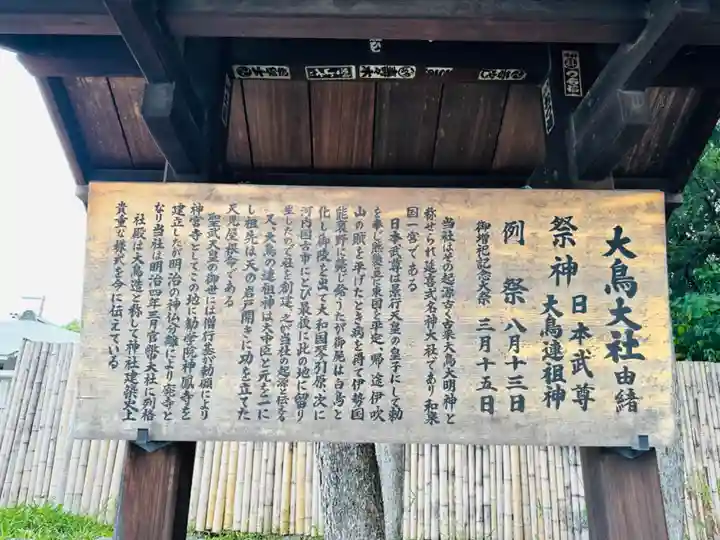 大鳥大社由緒
祭神 日本武尊
大鳥連祖神
例祭 八月十三日
御増祀記念大祭 三月十五日
当社はその起源古く古来大鳥大明神と
称せられ延喜式名神大社であり和泉
国一宮である
日本武尊は景行天皇の皇子にして勅
を奉じ熊襲並に東国を平定帰途伊吹
山の賊を平げたとき病を得て伊勢国
能褒野に薨じ給うたが御屍は白鳥と
化し御陵を出て大和国琴引原次に
河内国古市にとび最後に此の地に留り
ましたので社を創建之が当社の起源と伝える
又、大鳥の連祖神は大中臣と先を一に
し祖先は天の岩戸開きに功を立てた
天児屋根命である
聖武天皇の御世には僧行基が勅願により
神宮寺としてこの地に勧学院神鳳寺を
建立したが明治の神仏分離により廃寺と
なり当社は明治四年三月官幣大社に列格
社殿は大鳥造と称して神社建築史上
貴重な様式を今に伝えている